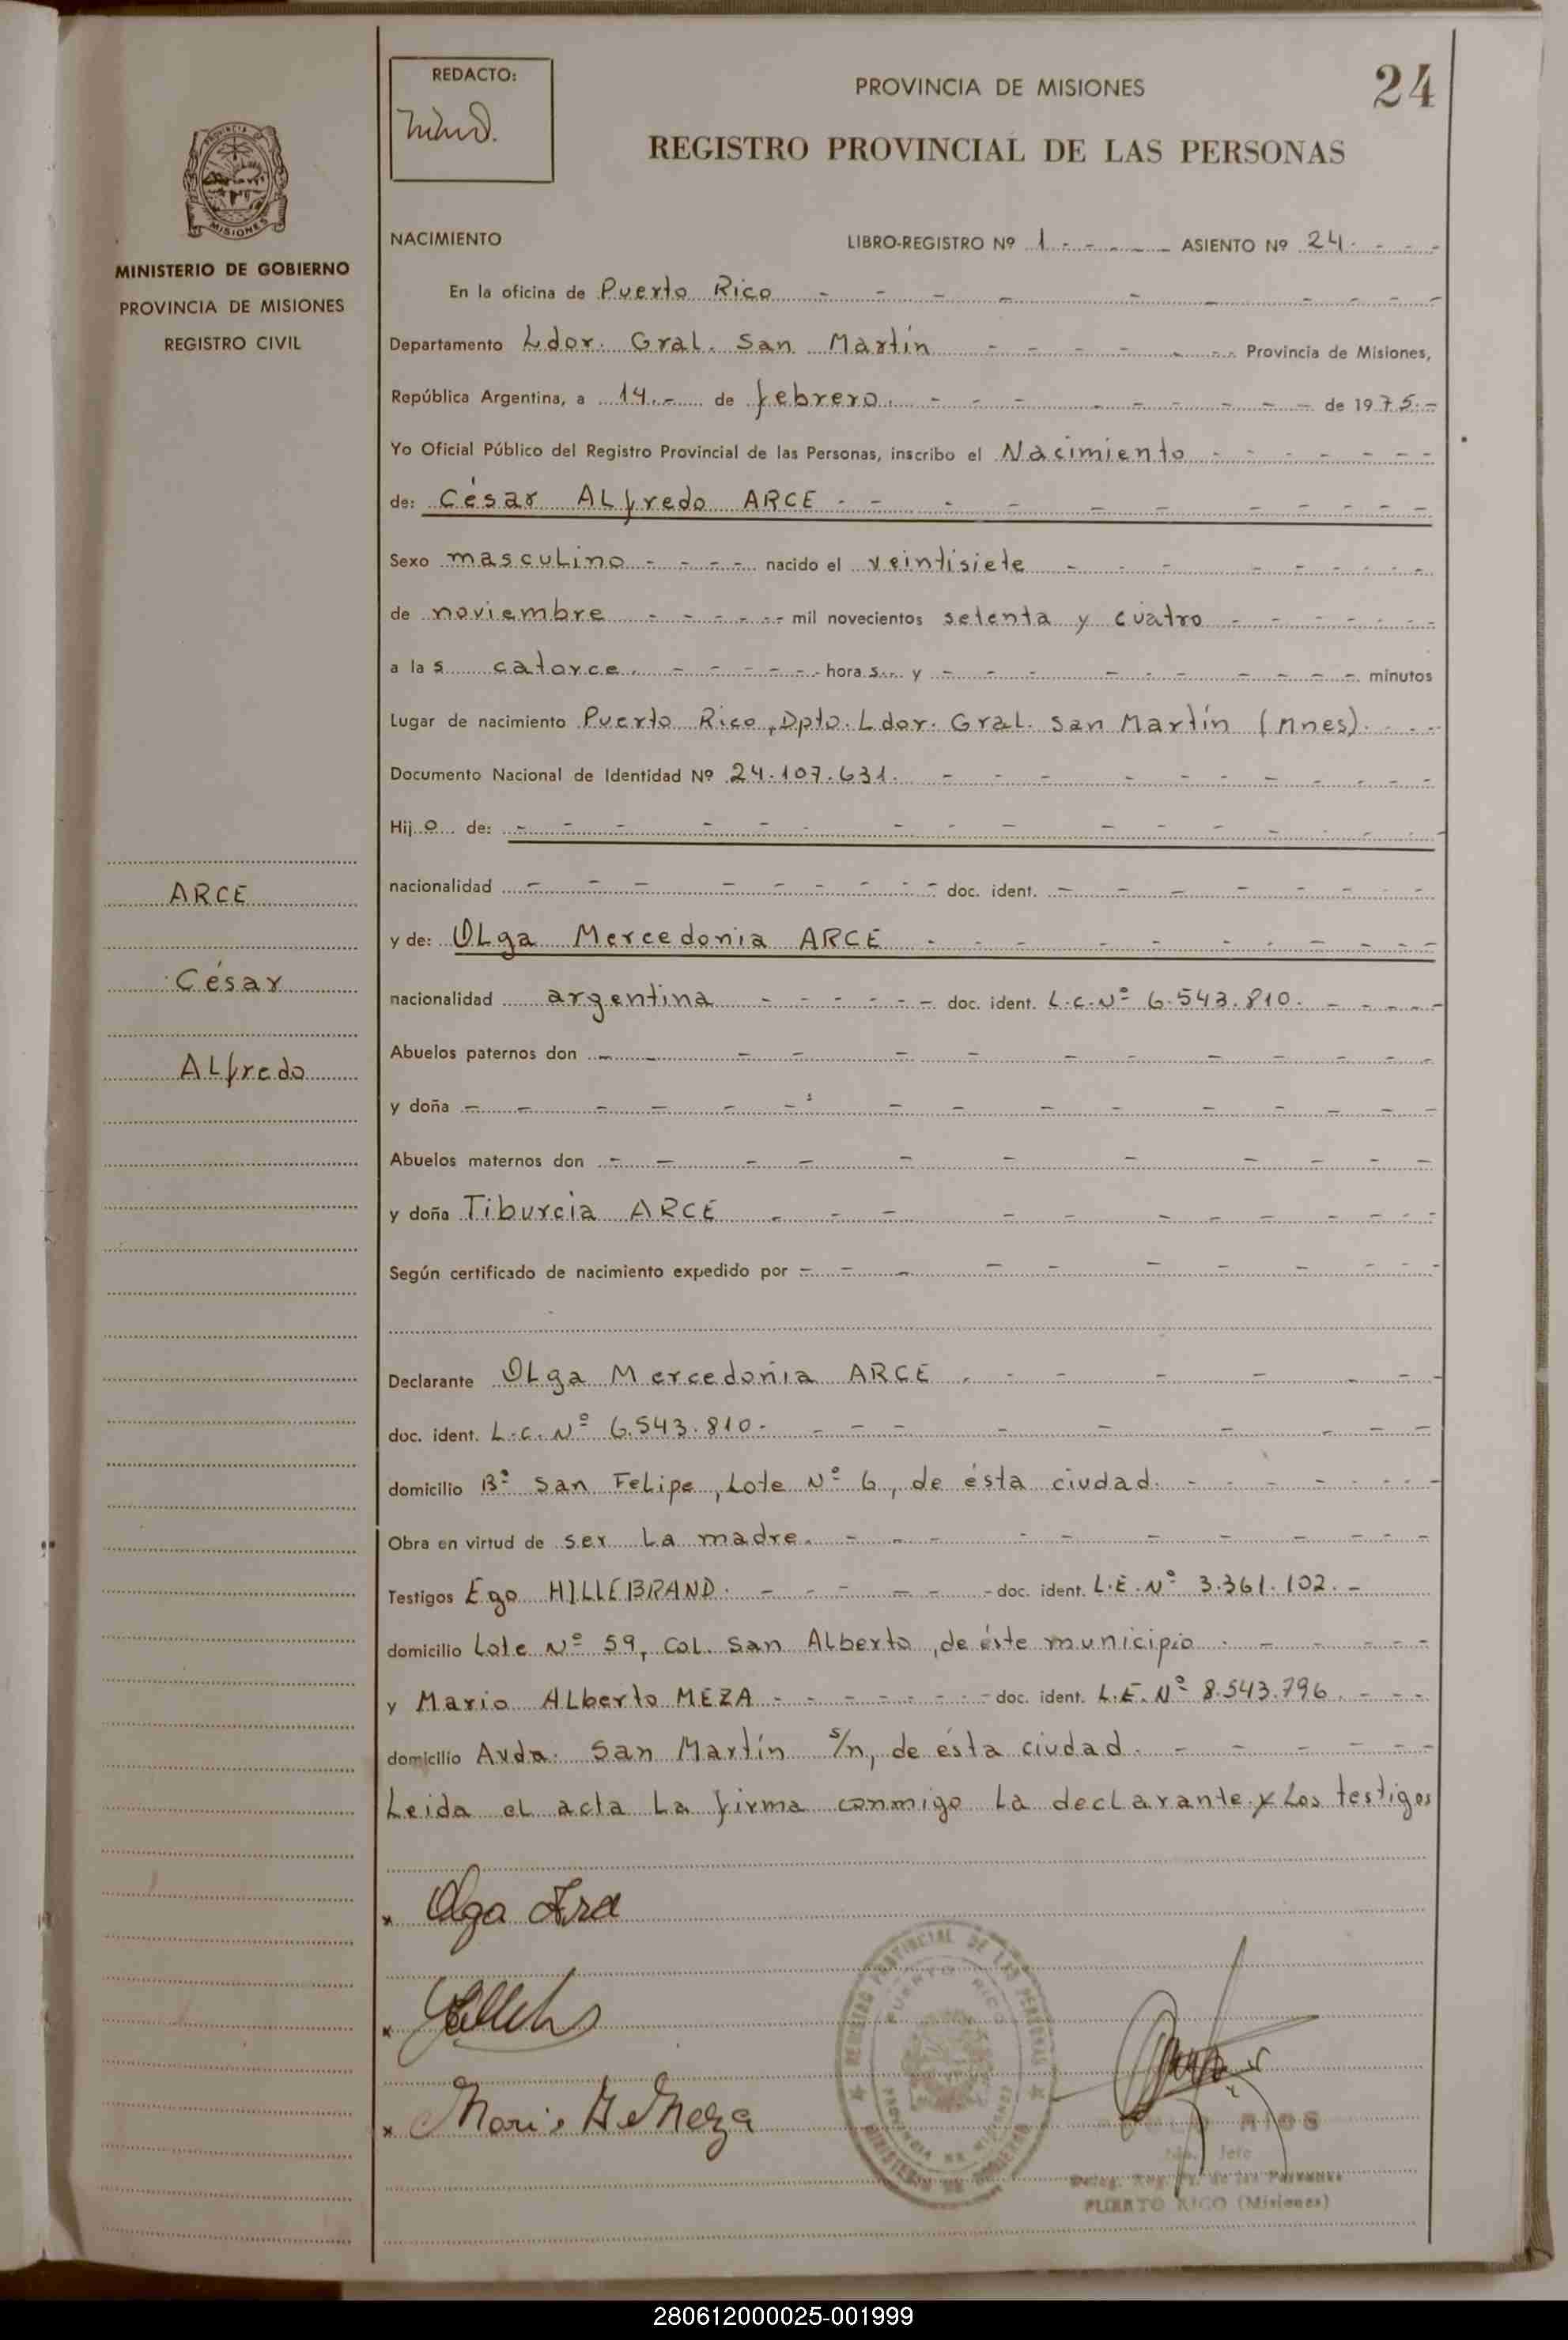 REDACTO:
PROVINCIA DE MISIONES
24
REGISTRO PROVINCIAL DE LAS PERSONAS
MISIONES
MINISTERIO DE GOBIERNO
PROVINCIA DE MISIONES
REGISTRO CIVIL
NACIMIENTO LIBRO-REGISTRO Nº 1 ASIENTO Nº 24
En la oficina de Puerto Rico
Departamento Ldor. Gral. San Martín Provincia de Misiones,
República Argentina, a 14 de febrero de 1975
Yo Oficial Público del Registro Provincial de las Personas, inscribo el Nacimiento
de: César Alfredo ARCE
Sexo masculino nacido el veintisiete
de noviembre mil novecientos setenta y cuatro
a las catorce horas y minutos
Lugar de nacimiento Puerto Rico, Dpto. Ldor. Gral. San Martín (Mnes).
Documento Nacional de Identidad Nº 24.107.631.
Hijo de:
nacionalidad doc. ident.
y de: Olga Mercedonia ARCE
nacionalidad argentina doc. ident. L.C.Nº 6.543.810.
Abuelos paternos don
y doña
Abuelos maternos don
y doña Tiburcia ARCE
Según certificado de nacimiento expedido por
Declarante Olga Mercedonia ARCE
doc. ident. L.C. Nº 6.543.810
domicilio Bº San Felipe, Lote Nº 6, de ésta ciudad.
Obra en virtud de ser la madre.
Testigos Ego HILLEBRAND. doc. ident. L.E. Nº 3.361.102.
domicilio Lote Nº 59, Col. San Alberto, de éste municipio
y Mario Alberto MEZA doc. ident. L.E. Nº 8.543.796
domicilio Avda. San Martín s/n, de ésta ciudad.
Leida el acta la firma conmigo la declarante y los testigos
ARCE
César
Alfredo
x Olga Arce
x
x Mario A Meza
REGISTRO PROVINCIAL DE LAS PERSONAS
PUERTO RICO
PROVINCIA DE MISIONES
MINISTERIO DE GOBIERNO
RIOS
Jefe
Deleg. Reg. P. de las Personas
PUERTO RICO (Misiones)
280612000025-001999